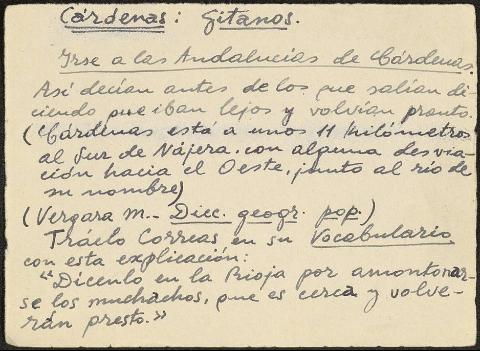 Cárdenas: Gitanos.
Irse a las Andalucías de Cárdenas.
Así decían antes de los que salían di-
ciendo que iban lejos y volvían pronto.
(Cárdenas está a unos 11 kilómetros
al Sur de Nájera, con alguna desvia-
ción hacia el Oeste, junto al río de
su nombre)
(Vergara M.- Dicc. geogr. pop.)
Tráelo Correas, en su Vocabulario
con esta explicación:
"Dícenlo en la Rioja por amontonar-
se los muchachos, que es cerca y volve-
rán presto.»